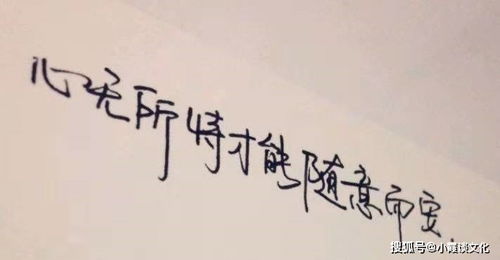 心无所恃才能随意而安.
搜狐号@小嫚谈文化